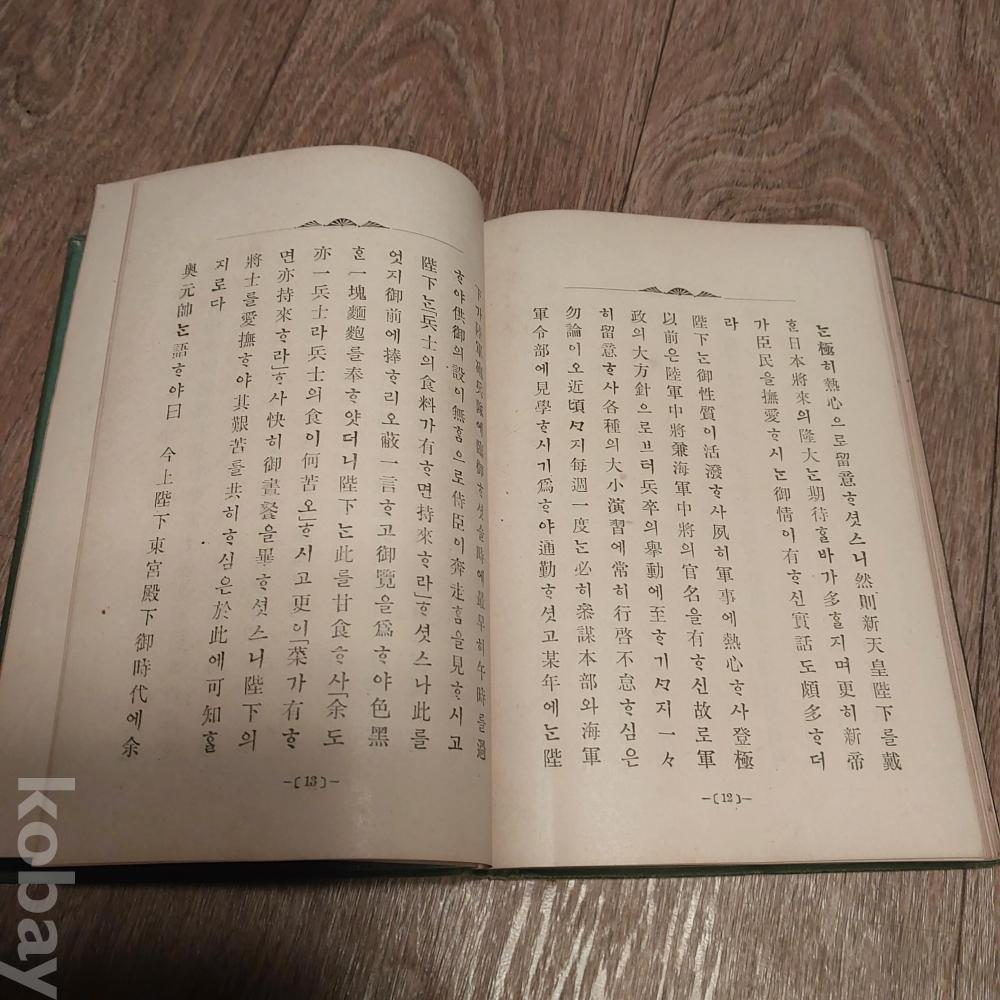 는極히熱心으로留意ᄒᆞ셧스니然則新天皇陛下를戴
ᄒᆞᆫ日本將來의隆大는期待ᄒᆞᆯ바가多ᄒᆞᆯ지며更히新帝
가臣民을撫愛ᄒᆞ시는御情이有ᄒᆞ신實話도頗多ᄒᆞ더
라
陛下는御性質이活潑ᄒᆞ사夙히軍事에熱心ᄒᆞ사登極
以前은陸軍中將兼海軍中將의官名을有ᄒᆞ신故로軍
政의大方針으로브터兵卒의擧動에至ᄒᆞ기ᄭᆞ지一々
히留意ᄒᆞ사各種의大小演習에常히行啓不怠ᄒᆞ심은
勿論이오近頃ᄭᆞ지每週一度는必히叅謀本部와海軍
軍令部에見學ᄒᆞ시기爲ᄒᆞ야通勤ᄒᆞ셧고某年에는陛
—〔12〕—
下가陸軍砲兵隊에臨御ᄒᆞ셧슬時에最早히午時를過
ᄒᆞ야供御의設이無ᄒᆞᆷ으로侍臣이奔走ᄒᆞᆷ을見ᄒᆞ시고
陛下는「兵士의食料가有ᄒᆞ면持來ᄒᆞ라」ᄒᆞ셧스나此를
엇지御前에捧ᄒᆞ리오蔽一言ᄒᆞ고御覽을爲ᄒᆞ야色黑
ᄒᆞᆫ一塊麵麭를奉ᄒᆞ얏더니陛下는此를甘食ᄒᆞ사「余도
亦一兵士라兵士의食이何苦오」ᄒᆞ시고更이「菜가有ᄒᆞ
면亦持來ᄒᆞ라」ᄒᆞ사快히御晝餐을畢ᄒᆞ셧스니陛下의
將士를愛撫ᄒᆞ야其艱苦를共히ᄒᆞ심은於此에可知ᄒᆞᆯ
지로다
奧元帥는語ᄒᆞ야曰 今上陛下東宮殿下御時代에余
—〔13〕—
kobay